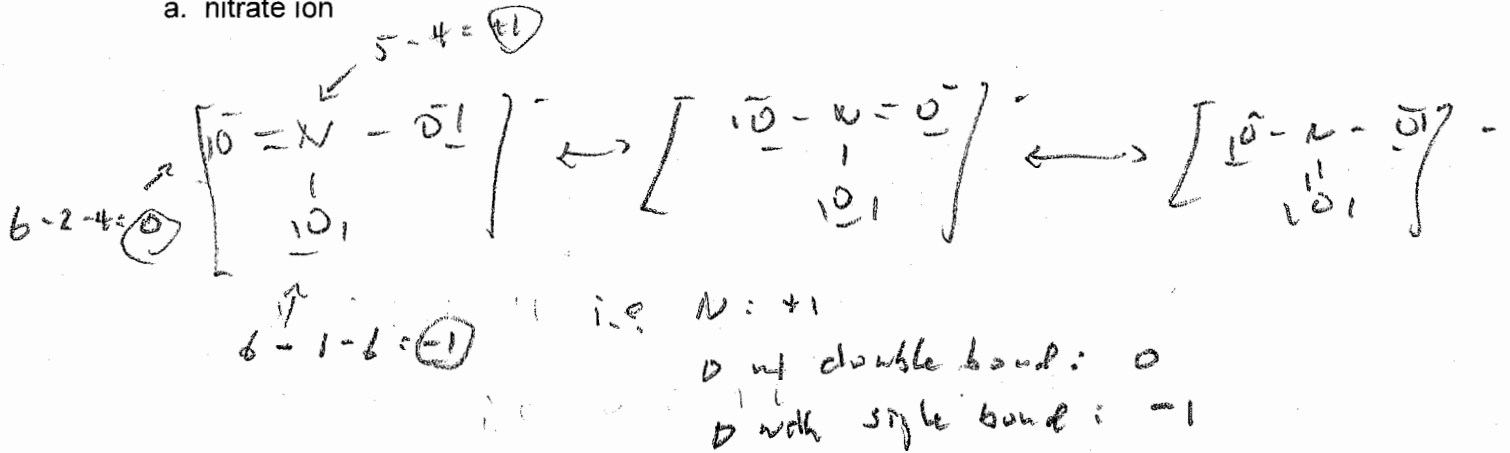 a. nitrate ion
5 - 4 = +1
[|O = N - O|]⁻ ↔ [|O - N = O]⁻ ↔ [|O - N - O|]⁻
| | ||
|O| |O| |O|
6 - 2 - 4 = 0
6 - 1 - 6 = -1
i.e. N: +1
O w/ double bond: 0
O with single bond: -1